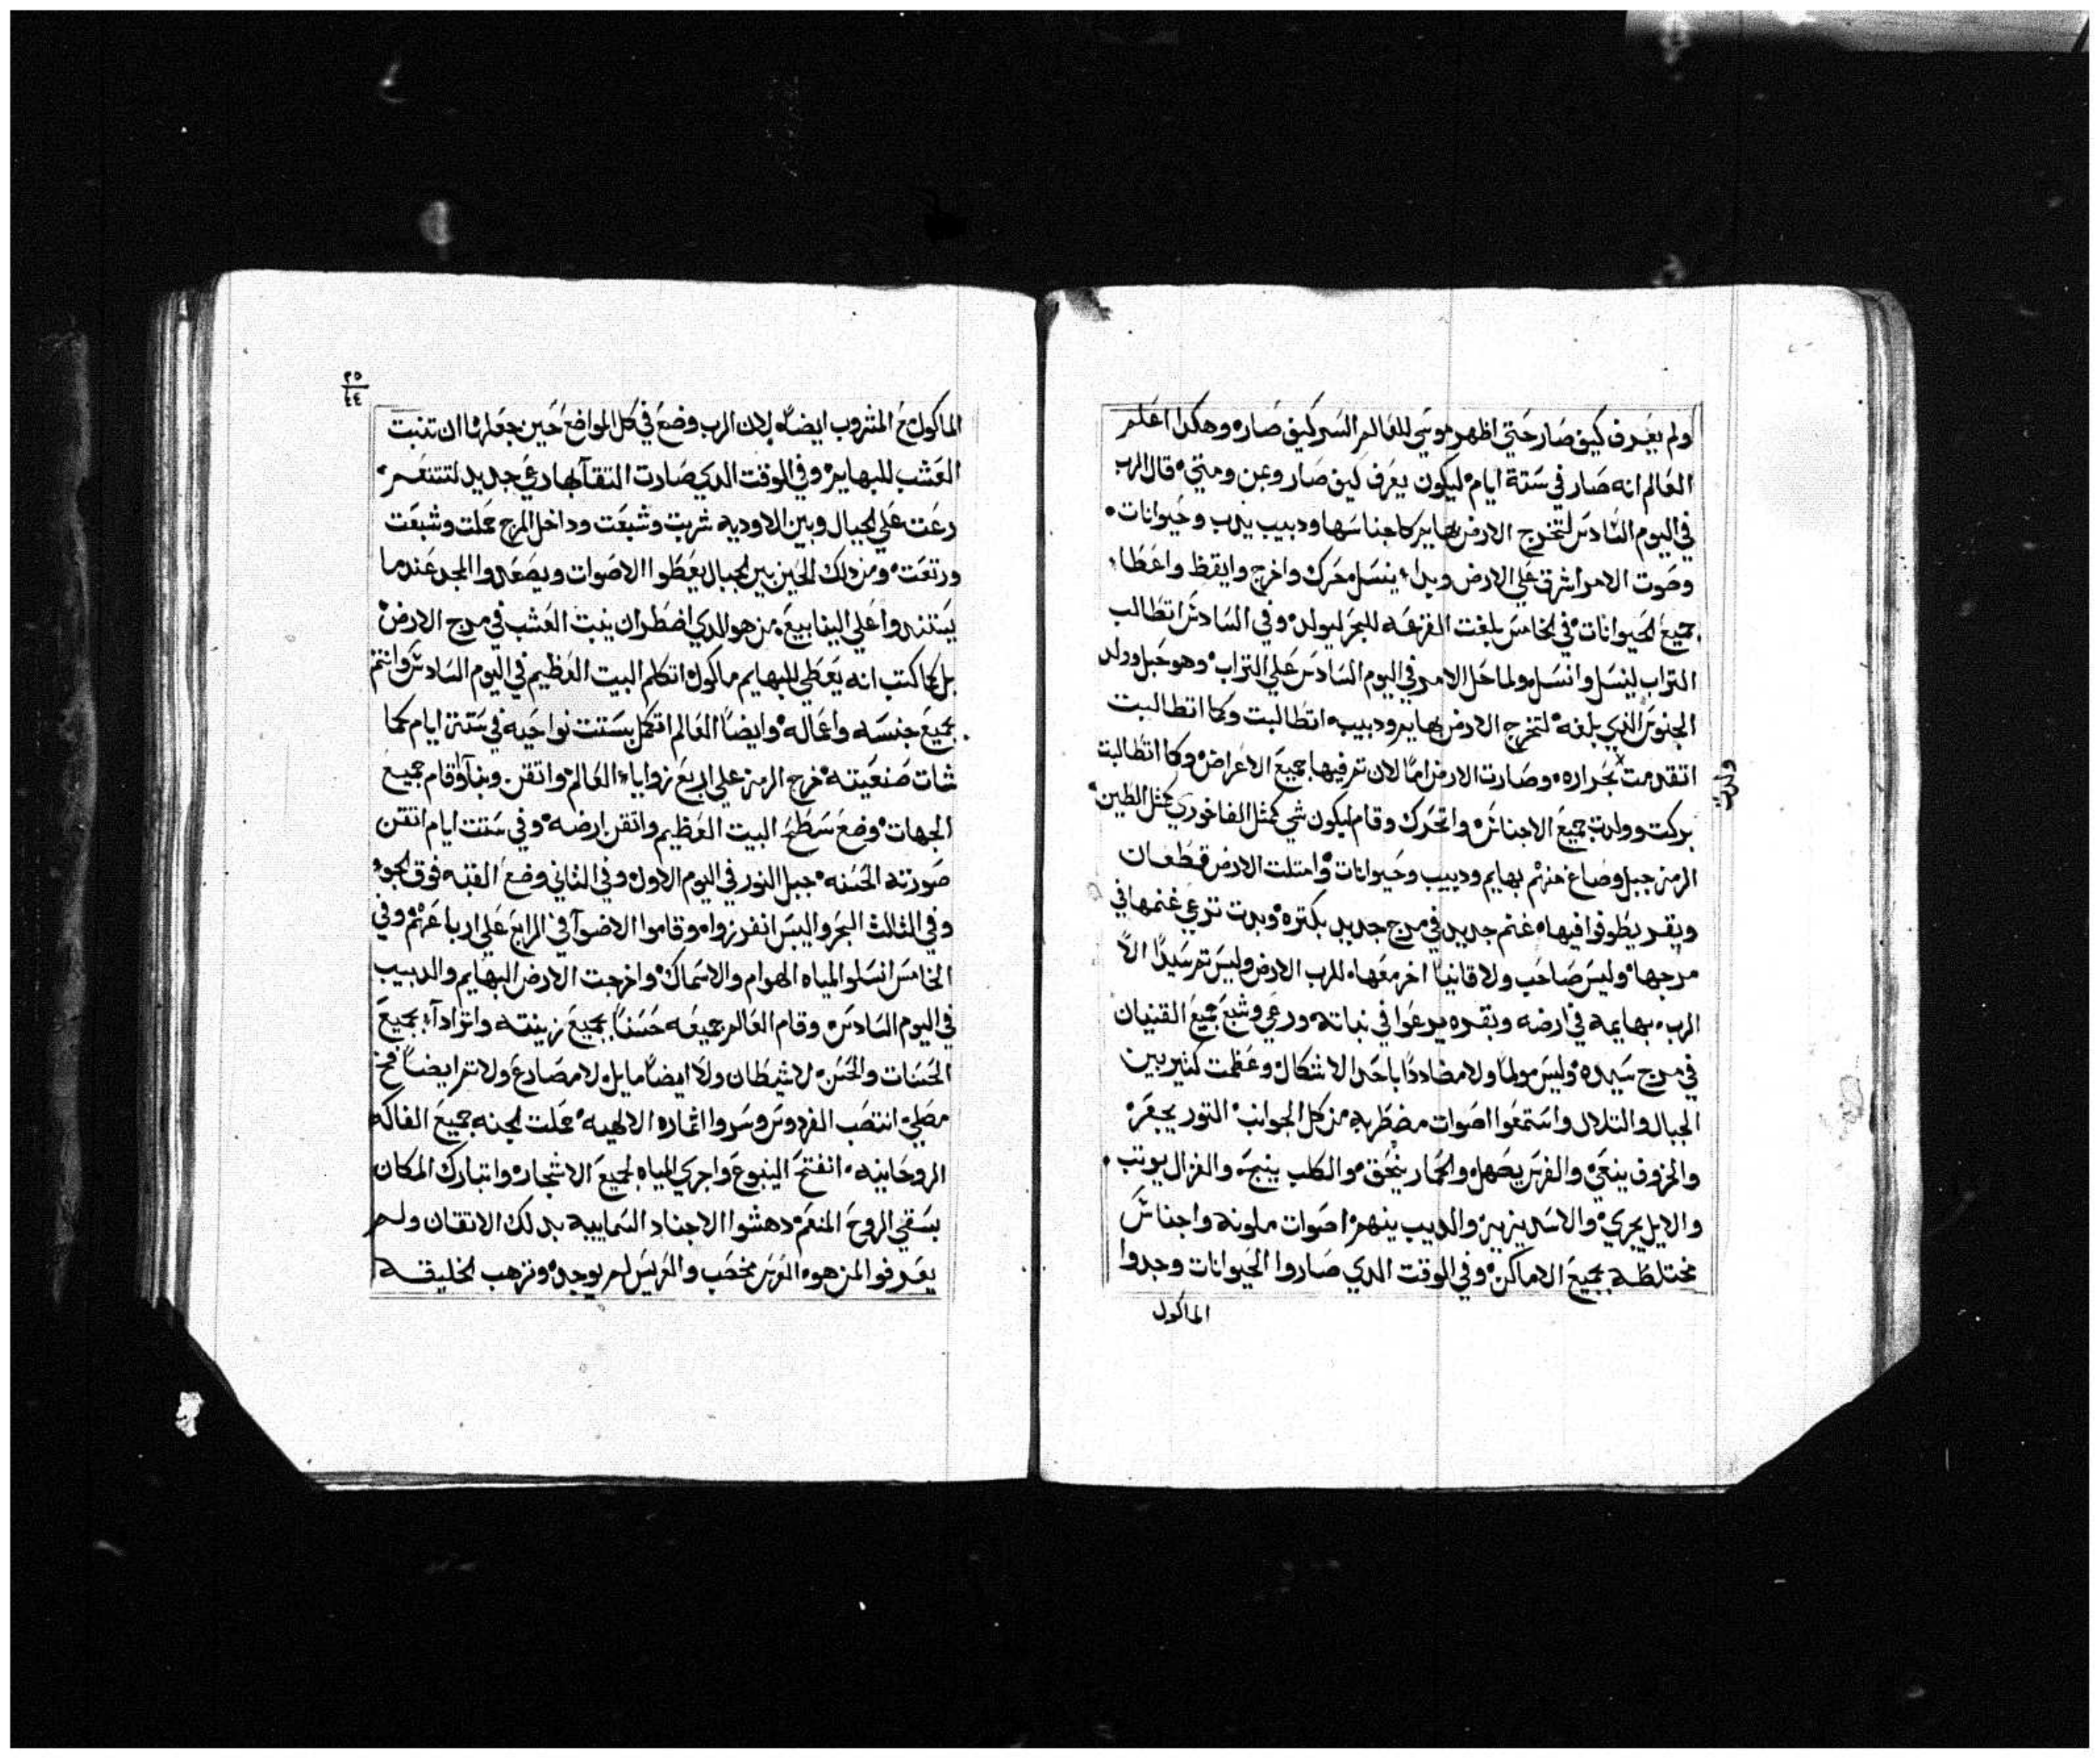 ولم يعرف كيف صار حتي اظهر موسي للعالم السر كيف صار وهكدا اعلم
العالم انه صار في ستة ايام ليكون يعرف كيف صار وعن ومتي قال الرب
في اليوم السادس لتخرج الارض بهايم كاجناسها ودبيب يدب وحيوانات
وصوت الامر اشرق علي الارض وبدا ينسل حرك واخرج وايقظ واعطا
جميع الحيوانات في الخامس بلغت القرعه للبحر ليولد وفي السادس اتطالب
التراب لينسل وانسل ولما حل الامر في اليوم السادس علي التراب وهو حبل وولد
الجنوس الدي بلغه لتخرج الارض بهايم ودبيب اتطالبت وكما اتطالبت
اتقدمت بحراره وصارت الارض اما لان تم فيها جميع الاعراض وكما اتطالبت
ولدت
بركت وولدت جميع الاجناس واتحرك وقام ليكون شي كمثل الفاخوري كمثل الطين
الرمز جبل وصاغ منهم بهايم ودبيب وحيوانات وامتلت الارض قطعان
وبقر يطوفوا فيها غنم جديد في مرج جديد بكتره وبدت ترعي غنمها في
مرجها وليس صاحب ولا قانيا اخر معها للرب الارض وليس تم سيدا الا
الرب بهايمه في ارضه وبقره يرعوا في نباته ورعي وشبع جميع القنيان
في مرج سيده وليس مولما ولا مضاددا باحد الاشكال وعظمت كتير بين
الجبال والتلال واستمعوا اصوات مضطربه من كل الجوانب التور يجعر
والخروف ينعي والفرس يصهل والحمار ينهق والكلب ينبح والغزال يوتب
والايل يجري والاسد يزير والدبيب ينهم اصوات ملونه واجناس
مختلطه بجميع الاماكن وفي الوقت الدي صاروا الحيوانات وجدوا
الماكول
٢٥
٤٤
الماكول مع المشروب ايضا لان الرب وضع في كل المواضع حين جعلها ان تنبت
العشب للبهايم وفي الوقت الدي صارت التقا لها رعي جديد لتتنعم
رعت علي الجبال وبين الاوديه شربت وشبعت وداخل المرج حملت وشبعت
ورتعت ومن دلك الحين بين الجبال يعطوا الاصوات ويصعدوا المجد عندما
يستندوا علي الينابيع من هو الدي اضطر ان ينبت العشب في مرج الارض
بل كما كتب انه يعطي للبهايم ماكول اتكلم البيت العظيم في اليوم السادس وانتم
بجميع جنسه واعماله وايضا العالم اتكمل بستت نواحيه في ستة ايام كما
شات صنعيته خرج الرمز علي اربع زوايا العالم واتقن وبنا واقام جميع
الجهات وضع سطح البيت العظيم واتقن ارضه وفي ستت ايام اتقن
صورته الحسنه جبل النور في اليوم الاول وفي التاني وضع القبه فوق الجو
وفي الثالث البحر واليبس انفرزوا وقاموا الاضوا في الرابع علي ارباعهم وفي
الخامس انسلوا المياه الهوام والاسماك واخرجت الارض البهايم والدبيب
في اليوم السادس وقام العالم جميعه حسنا بجميع زينته واتزادا بجميع
الحسنات والحسن لا شيطان ولا ايضا مايل لا مصارع ولا تم ايضا فخ
مصلي انتصب الفردوس وسروا اتماره الالهيه حملت الجنه جميع الفاكه
الروحانيه انفتح الينبوع واجري المياه لجميع الاشجار واتبارك المكان
بسقي الروح المنعم دهشوا الاجناد السماييه بدلك الاتقان ولم
يعرفوا لمن هو العرس مخصب والعريس لم يوجد وتزهب الخليقه